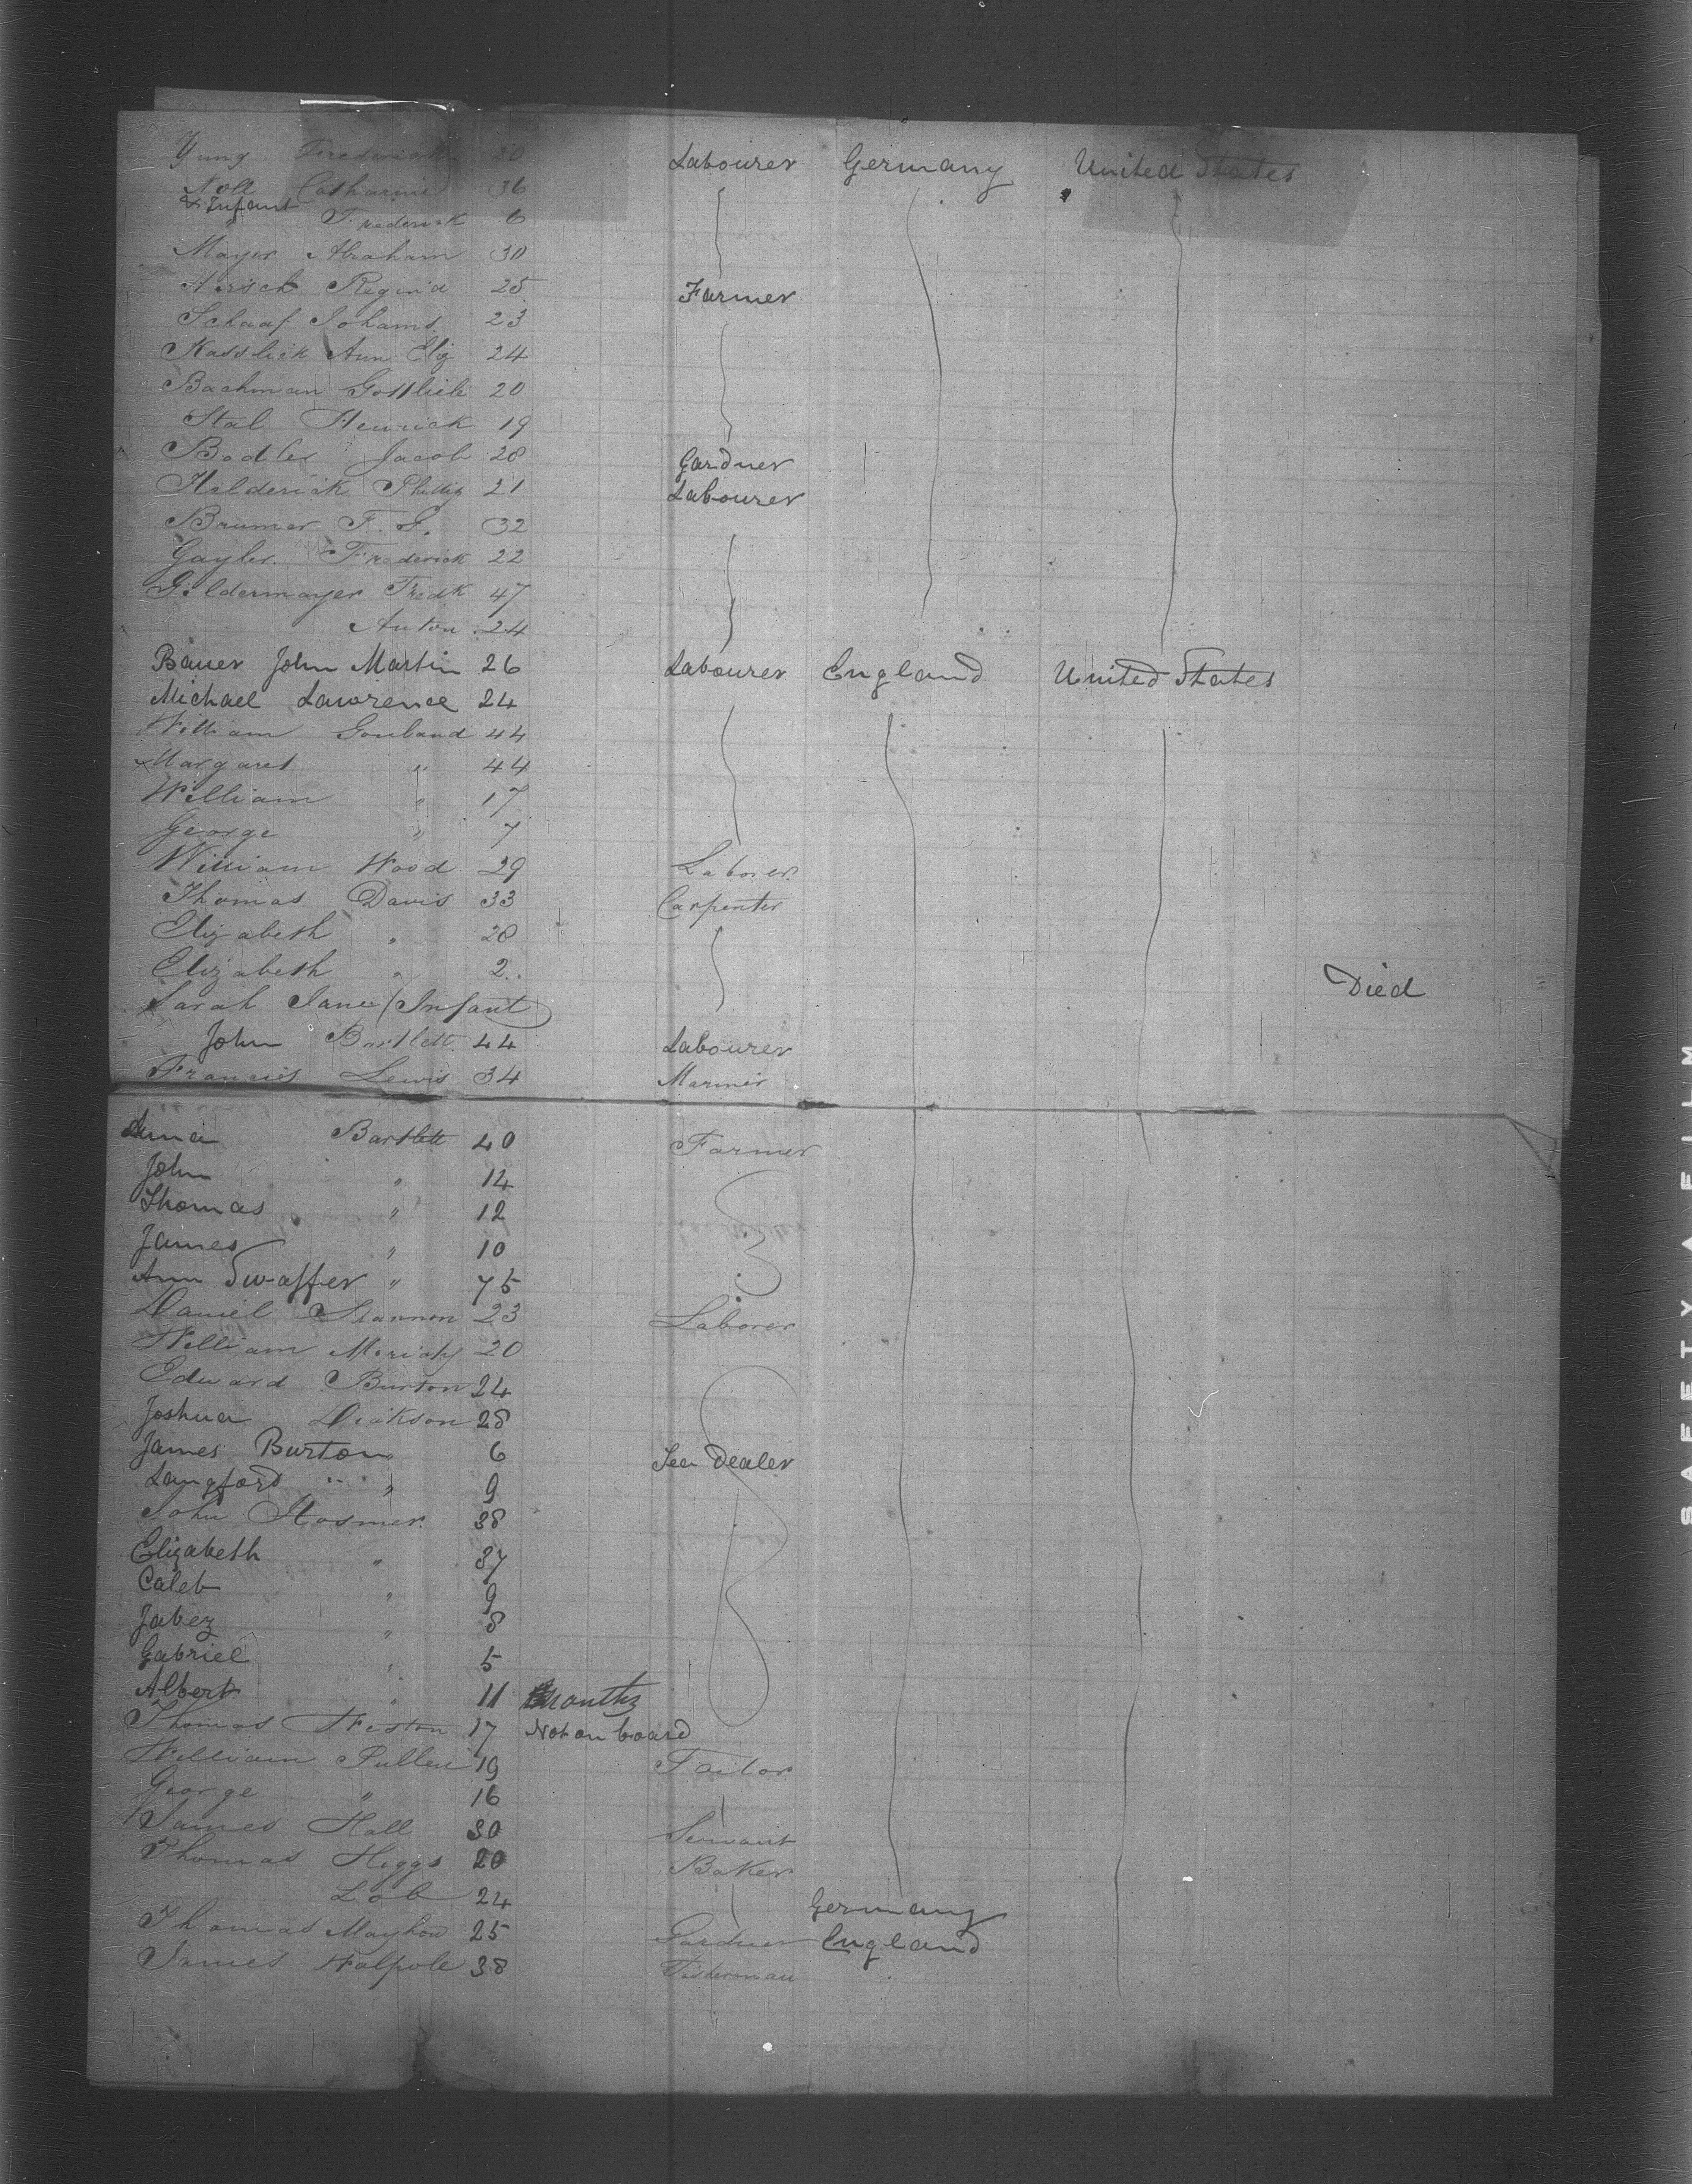 Yung Frederick 20 Labourer Germany United States
Noll Catharine 36
& Infant
" Frederick 6
Mayer Abraham 30
Hersch Regina 25 Farmer
Schaaf Johams 23
Kasslick Ann Eliz 24
Bachman Gottlieb 20
Stal Henrick 19
Badler Jacob 28 Gardner
Halderick Phillip 21 Labourer
Brumer F. 32
Gayler. Frederick 22
Gildermayer Fredk 47
Anton 24
Bauer John Martin 26 Labourer England United States
Michael Lawrence 24
William Gouland 44
Margaret " 44
William " 17
George " 7
William Wood 29 Laborer
Thomas Davis 33 Carpenter
Elizabeth " 28
Elizabeth " 2 Died
Sarah Jane (Infant)
John Bartlett 44 Labourer
Francies Lewis 34 Mariner
Anna Bartlett 40 Farmer
John " 14
Thomas " 12
James " 10
Ann Swaffer " 75
Daniel Shannon 23 Laborer
William Moriaty 20
Edward Burton 24
Joshua Dickson 28
James Burton 6 Dealer
Langford " 9
John Hosmer 38
Elizabeth " 37
Caleb " 9
Jabez " 8
Gabriel " 5
Albert " 11 months
Thomas Weston 17 Not on board
William Pullen 19 Tailor
George " 16
James Hall 30 Servant
Thomas Higgs 20 Baker
Lob 24 Germany
Thomas Mayhow 25 Gardner England
James Walpole 38 Fisherman
SAFETY FILM